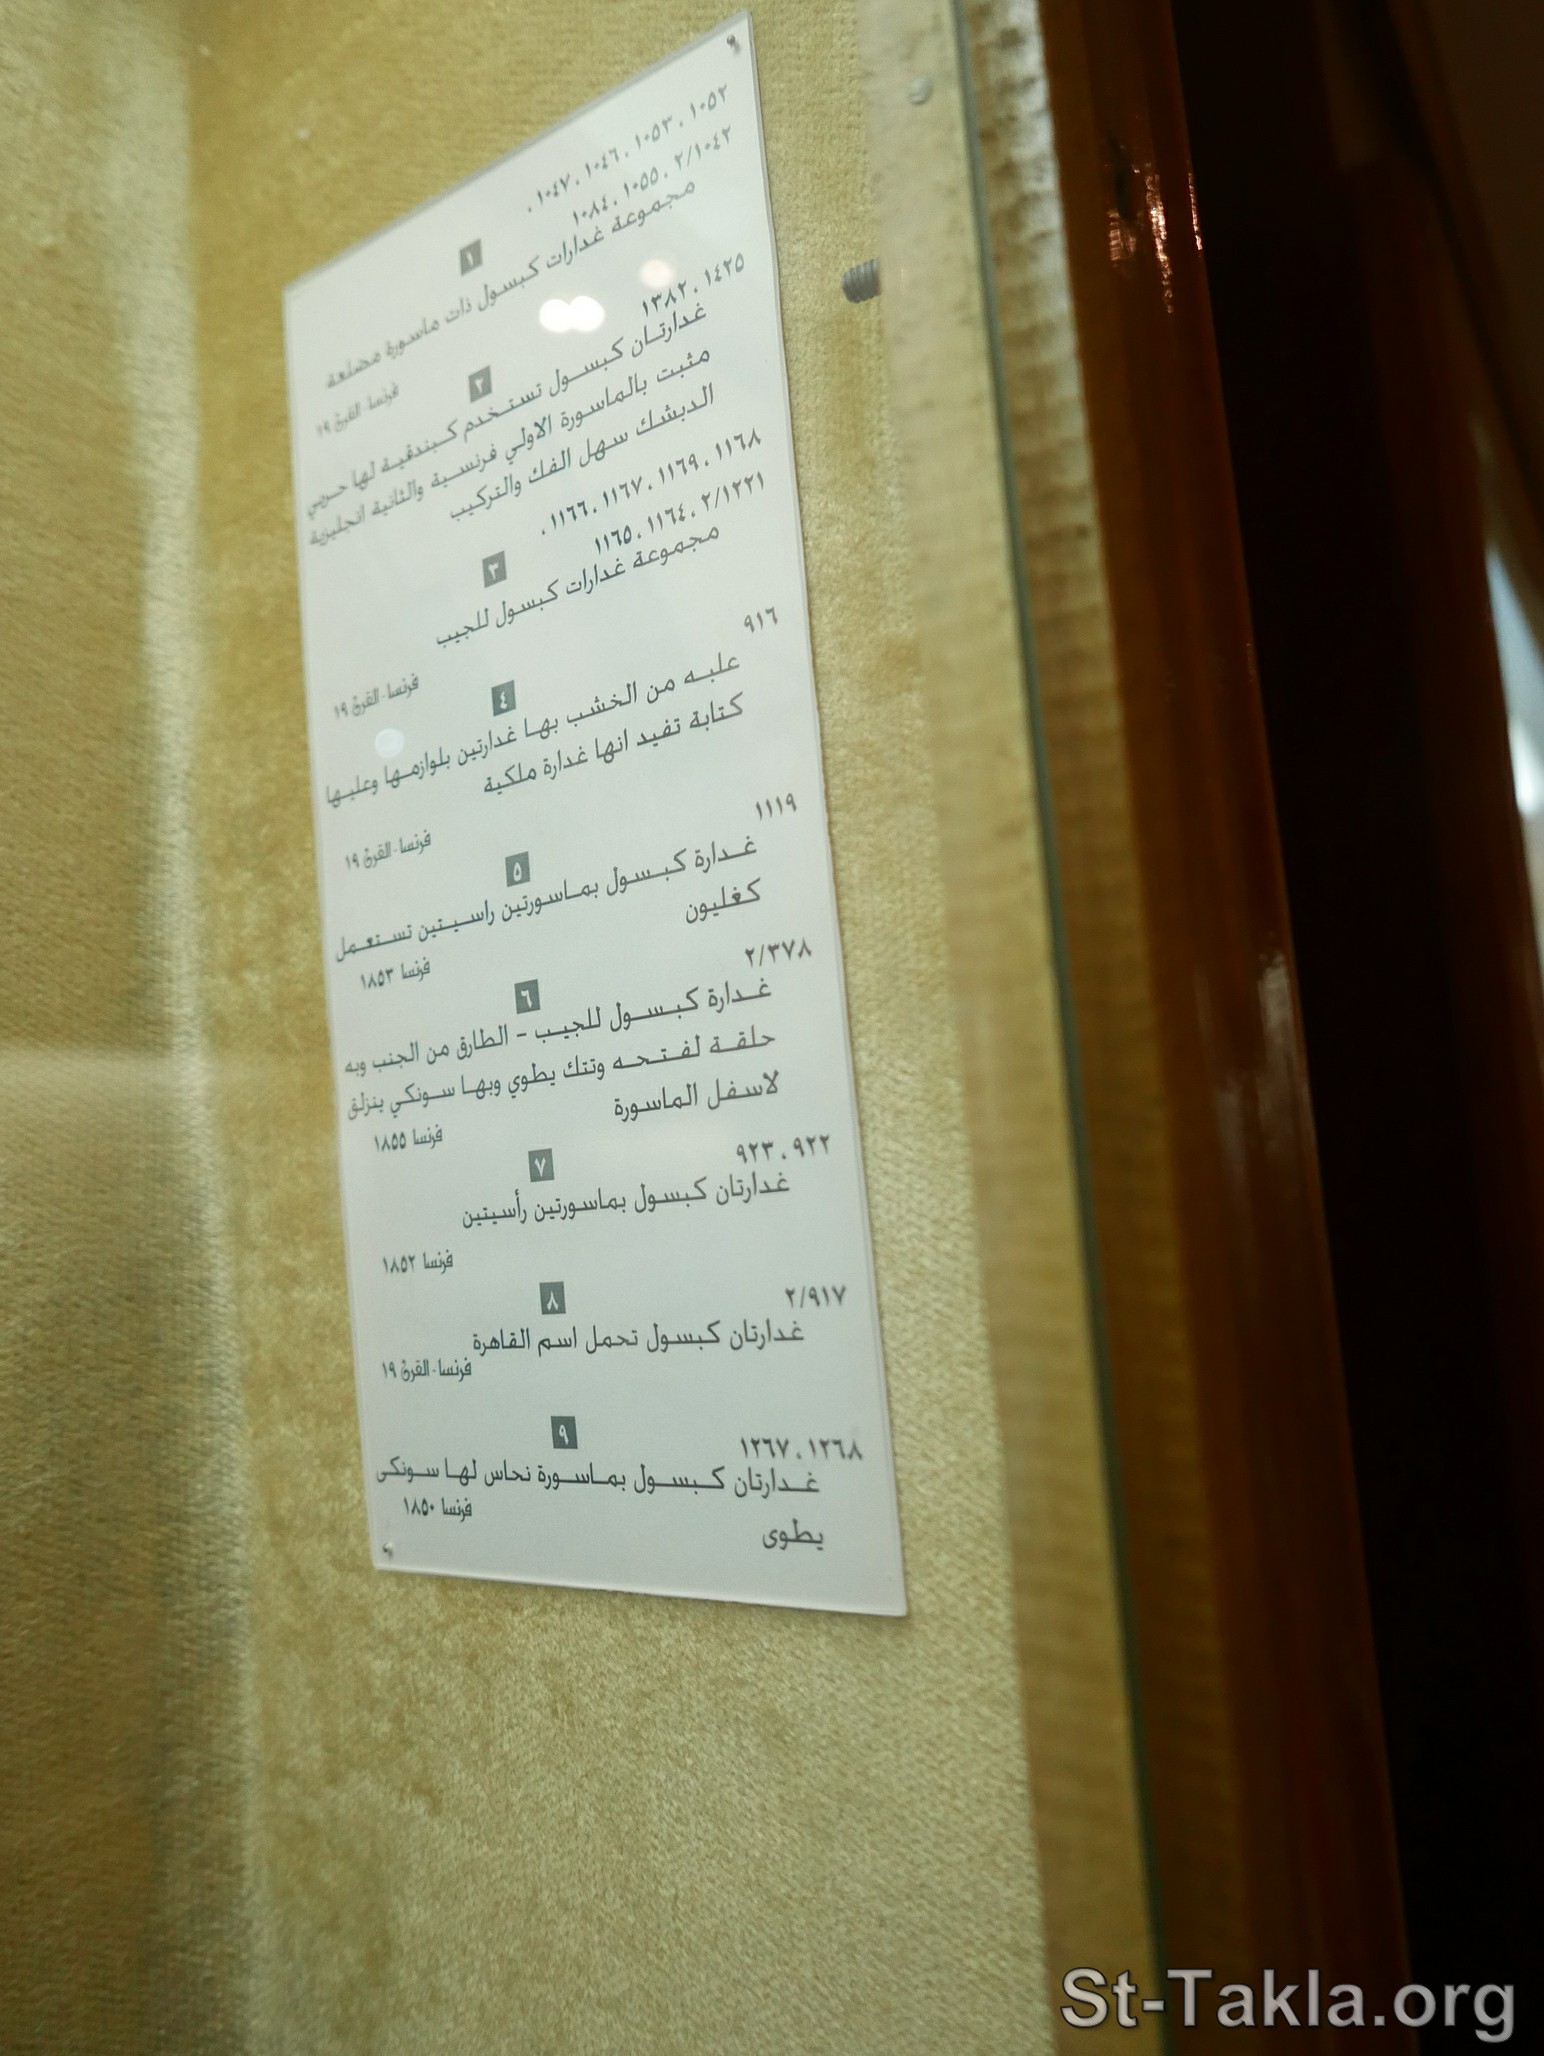 ١٠٥٢ ، ١٠٥٣ ، ١٠٤٦ ، ١٠٤٧ ،
٢/١٠٤٢ ، ١٠٥٥ ، ١٠٨٤
١
مجموعة غدارات كبسول ذات ماسورة مضلعة
فرنسا - القرن ١٩
١٤٢٥ ، ١٣٨٢
٢
غدارتان كبسول تستخدم كبندقية لها حربي
مثبت بالماسورة الاولي فرنسية والثانية انجليزية
الدبشك سهل الفك والتركيب
١١٦٨ ، ١١٦٩ ، ١١٦٧ ، ١١٦٦ ،
٢/١٢٢١ ، ١١٦٤ ، ١١٦٥
٣
مجموعة غدارات كبسول للجيب
فرنسا - القرن ١٩
٩١٦
٤
علبه من الخشب بها غدارتين بلوازمها وعليها
كتابة تفيد انها غدارة ملكية
فرنسا - القرن ١٩
١١١٩
٥
غدارة كبسول بماسورتين راسيتين تستعمل
كغليون
فرنسا ١٨٥٣
٢/٣٧٨
٦
غدارة كبسول للجيب - الطارق من الجنب وبه
حلقة لفتحه وتتك يطوي وبها سونكي ينزلق
لاسفل الماسورة
فرنسا ١٨٥٥
٩٢٢ ، ٩٢٣
٧
غدارتان كبسول بماسورتين رأسيتين
فرنسا ١٨٥٢
٢/٩١٧
٨
غدارتان كبسول تحمل اسم القاهرة
فرنسا - القرن ١٩
١٢٦٨ ، ١٢٦٧
٩
غدارتان كبسول بماسورة نحاس لها سونكى
يطوى
فرنسا ١٨٥٠
St-Takla.org